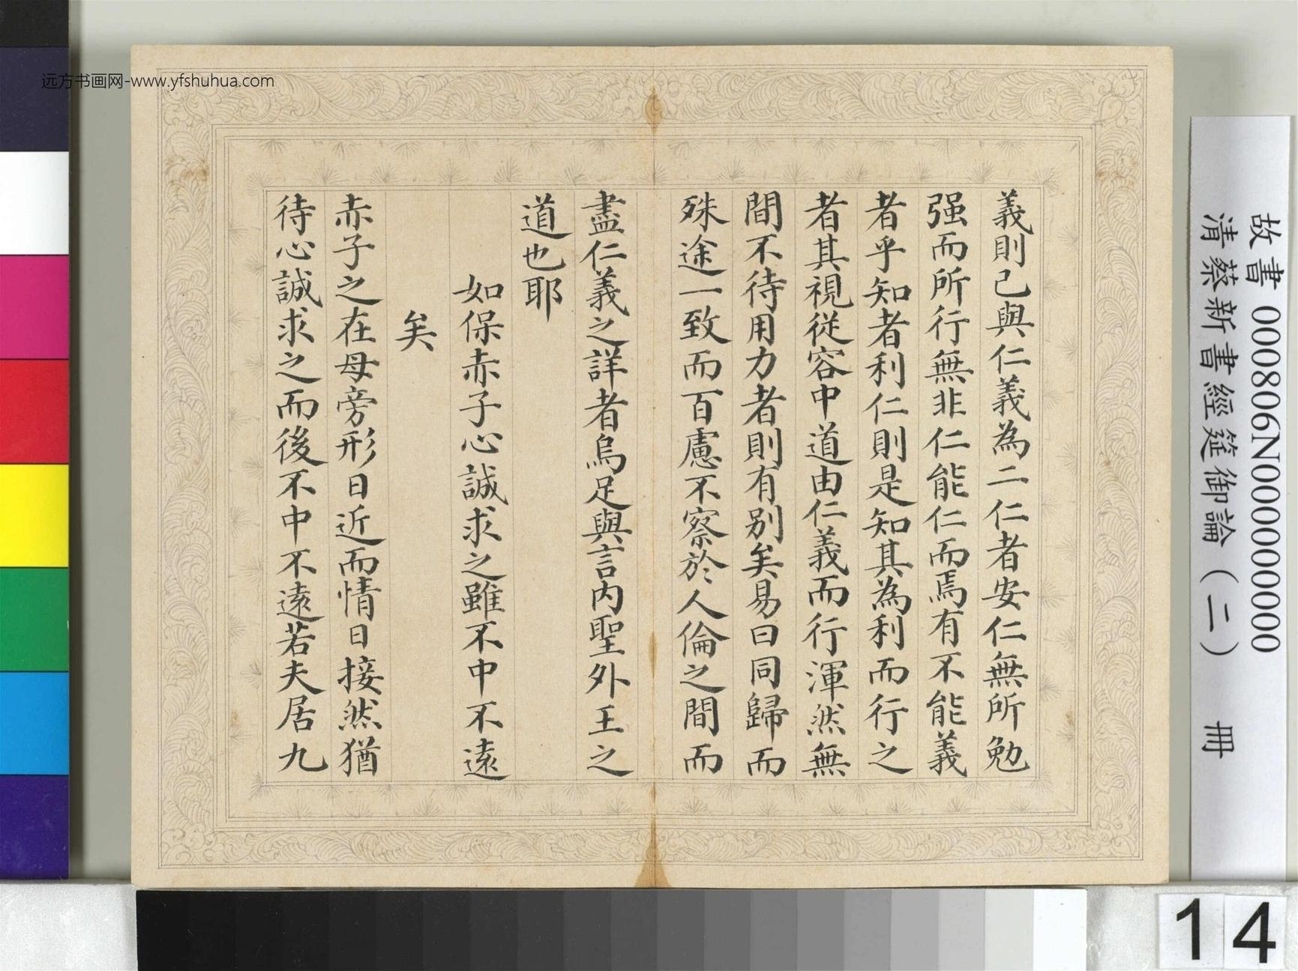 远方书画网-www.yfshuhua.com
義則己與仁義為二仁者安仁無所勉
强而所行無非仁能仁而焉有不能義
者乎知者利仁則是知其為利而行之
者其視從容中道由仁義而行渾然無
間不待用力者則有别矣易曰同歸而
殊途一致而百慮不察於人倫之間而
盡仁義之詳者烏足與言内聖外王之
道也耶
如保赤子心誠求之雖不中不遠
矣
赤子之在母旁形日近而情日接然猶
待心誠求之而後不中不遠若夫居九
故書 000806N000000000
清蔡新書經筵御論(二) 冊
14